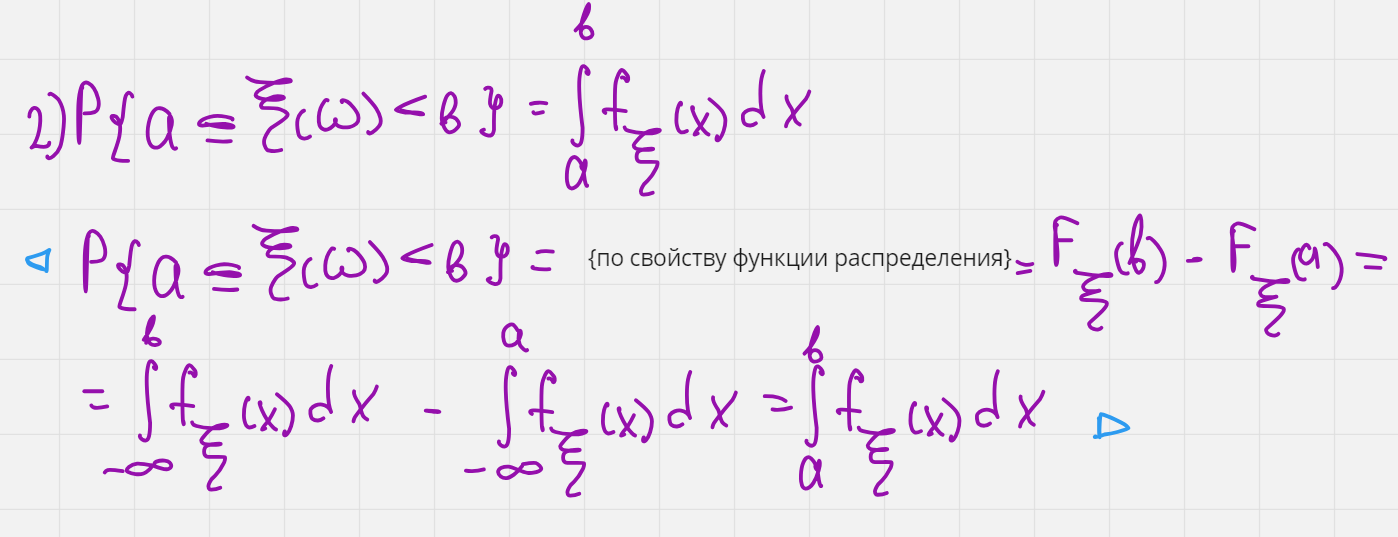 2) P{a ≤ ξ(ω) < b} = ∫_a^b f_ξ(x)dx
◁ P{a ≤ ξ(ω) < b} = {по свойству функции распределения} = F_ξ(b) - F_ξ(a) =
= ∫_{-∞}^b f_ξ(x)dx - ∫_{-∞}^a f_ξ(x)dx = ∫_a^b f_ξ(x)dx ▷